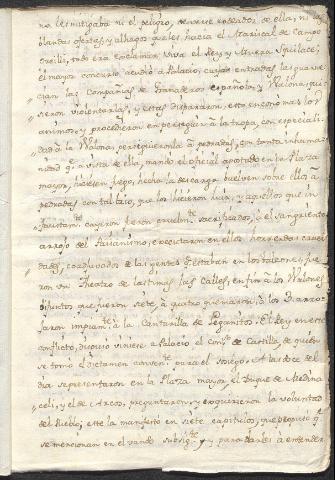 no les mitigaba ni el peligro, de verse rodeados de ella, ni las
blandas ofertas, y alhagos q.e les hacia el Mariscal de Campo
todo era exclamar, viva el Rey y Muera Squilace;
el mayor concurso acudió a Palacio, cuyas entradas las guarne
cian las Compañias de Granaderos Españoles, y Walona, qui
sieron violentarlas, y estas dispararon, esto encono mas los
animos, y procedieron en perseguir à la tropa, con especiali
dad à la Walona, persiguiendola à pedradas, con tanta inhuma
nidad q.e à vista de ella, mando el oficial apostado en la Plaza
mayor, hiciesen fuego, hecha la descarga buelven sobre ellos a
pedradas con tal teson, que los hicieron huir, y aquellos que in
faustam.te cayeron fueron cruelm.te sacrificados, à el sangriento
arrojo del Paisanismo, executaron en ellos horrendas cruel
dades, coadiubados de las gentes q.e estaban en los balcones; fue
ron un Theatro de lastimas las Calles, en fin à los Walones
difuntos que fueron siete, à quatro quemaron, à los 3 arras
traron impiam.te à la Cantarilla de Leganitos. El Rey en este
conflicto, dispuso viniese a Palacio el Cons.o de Castilla, de quien
se tomo el dictamen conven.te para el sosiego. A las doce del
dia se presentaron en la Plaza mayor el Duque de Medina
celi, y el de Arcos, preguntaron, y exquirieron la voluntad
del Pueblo, este la manifesto en siete capitulos, que propuso q.e
se mencionan en el vando subsig.te y para darles à entender